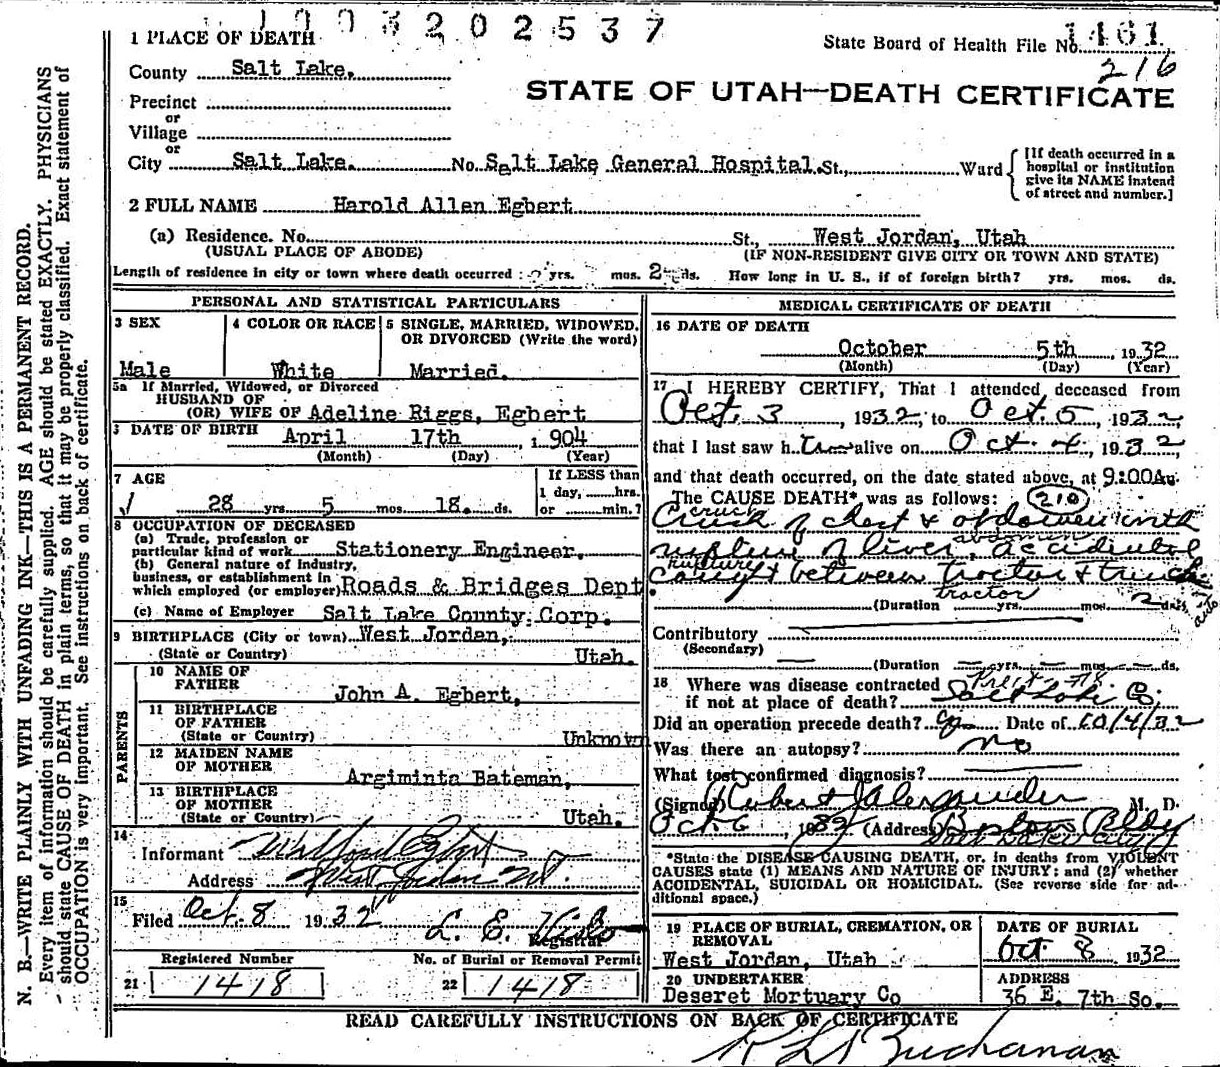 1003202537
1 PLACE OF DEATH
State Board of Health File No. 1461
216
County Salt Lake.
STATE OF UTAH—DEATH CERTIFICATE
Precinct
or
Village
or
City Salt Lake. No. Salt Lake General Hospital. St., Ward
[If death occurred in a hospital or institution give its NAME instead of street and number.]
2 FULL NAME Harold Allen Egbert
(a) Residence. No. St., West Jordan, Utah
(USUAL PLACE OF ABODE) (IF NON-RESIDENT GIVE CITY OR TOWN AND STATE)
Length of residence in city or town where death occurred yrs. mos. 2 ds. How long in U. S., if of foreign birth? yrs. mos. ds.
PERSONAL AND STATISTICAL PARTICULARS
3 SEX
Male
4 COLOR OR RACE
White
5 SINGLE, MARRIED, WIDOWED, OR DIVORCED (Write the word)
Married.
5a If Married, Widowed, or Divorced
HUSBAND OF
(OR) WIFE OF Adeline Riggs, Egbert
DATE OF BIRTH April 17th, 1904
(Month) (Day) (Year)
7 AGE
28 yrs. 5 mos. 18. ds.
If LESS than
1 day, hrs.
or min.?
8 OCCUPATION OF DECEASED
(a) Trade, profession or
particular kind of work Stationery Engineer.
(b) General nature of Industry,
business, or establishment in
which employed (or employer) Roads & Bridges Dept
(c) Name of Employer Salt Lake County Corp.
9 BIRTHPLACE (City or town) West Jordan,
(State or Country) Utah.
PARENTS
10 NAME OF
FATHER John A. Egbert,
11 BIRTHPLACE
OF FATHER
(State or Country) Unknown
12 MAIDEN NAME
OF MOTHER Argiminta Bateman,
13 BIRTHPLACE
OF MOTHER
(State or Country) Utah.
14
Informant Wilford Egbert
Address West Jordan Ut.
15
Filed Oct. 8 1932 L. E.
Registrar
Registered Number No. of Burial or Removal Permit
21 1418 22 1418
MEDICAL CERTIFICATE OF DEATH
16 DATE OF DEATH
October 5th, 1932
(Month) (Day) (Year)
17 I HEREBY CERTIFY, That I attended deceased from
Oct. 3, 1932, to Oct. 5, 1932,
that I last saw him alive on Oct. 4, 1932,
and that death occurred, on the date stated above, at 9:00A
The CAUSE DEATH* was as follows: 210
crush
Crush of chest & abdomen with
abdomen
rupture of liver, accidental
rupture
caught between tractor & truck
tractor
auto
(Duration yrs. mos. 2 ds.
Contributory
(Secondary)
(Duration yrs. mos. ds.
18 Where was disease contracted
if not at place of death? Salt Lake Co.
Did an operation precede death? Date of 10/4/32
Was there an autopsy? no
What test confirmed diagnosis?
(Signed) Alexander M. D.
Oct 6, 1932 (Address) Boston Bldg
Salt Lake City
*State the DISEASE CAUSING DEATH, or, in deaths from VIOLENT
CAUSES state (1) MEANS AND NATURE OF INJURY; and (2) whether
ACCIDENTAL, SUICIDAL OR HOMICIDAL. (See reverse side for ad-
ditional space.)
19 PLACE OF BURIAL, CREMATION, OR
REMOVAL
West Jordan, Utah
DATE OF BURIAL
Oct 8 1932
20 UNDERTAKER
Deseret Mortuary Co
ADDRESS
36 E. 7th So.
READ CAREFULLY INSTRUCTIONS ON BACK OF CERTIFICATE
Buchanan
N. B.—WRITE PLAINLY WITH UNFADING INK—THIS IS A PERMANENT RECORD.
Every item of information should be carefully supplied. AGE should be stated EXACTLY. PHYSICIANS
should state CAUSE OF DEATH in plain terms, so that it may be properly classified. Exact statement of
OCCUPATION is very important. See instructions on back of certificate.